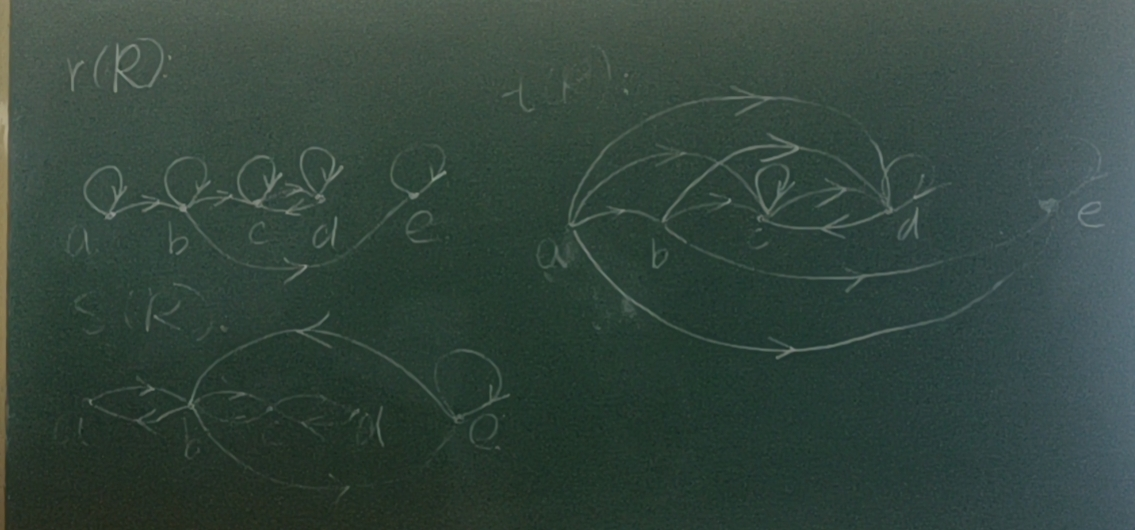 r(R):
a b c d e
s(R):
a b c d e
t(R):
a b c d e